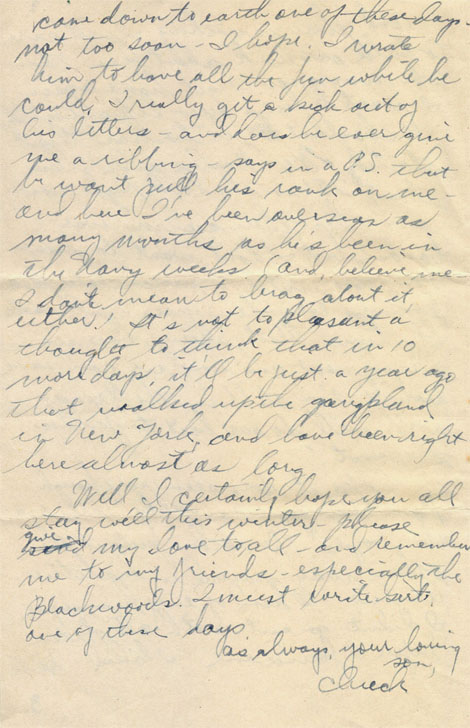 come down to earth one of these days -
not too soon - I hope. I wrote
him to have all the fun while he
could, I really get a kick out of
his letters - and does he ever give
me a ribbing - says in a P.S. that
he won't pull his rank on me -
and here I've been overseas as
many months as he's been in
the Navy weeks (and, believe me
I don't mean to brag about it
either! It's not to pleasant a
thought to think that in 10
more days, it'll be just a year ago
that walked up the gangplank
in New York, and have been right
here almost as long
Well I certainly hope you all
stay well this winter - please
give my love to all - and remember
me to my friends - especially the
Blackwoods. I must write
one of these days
as always, your loving
son,
Chuck